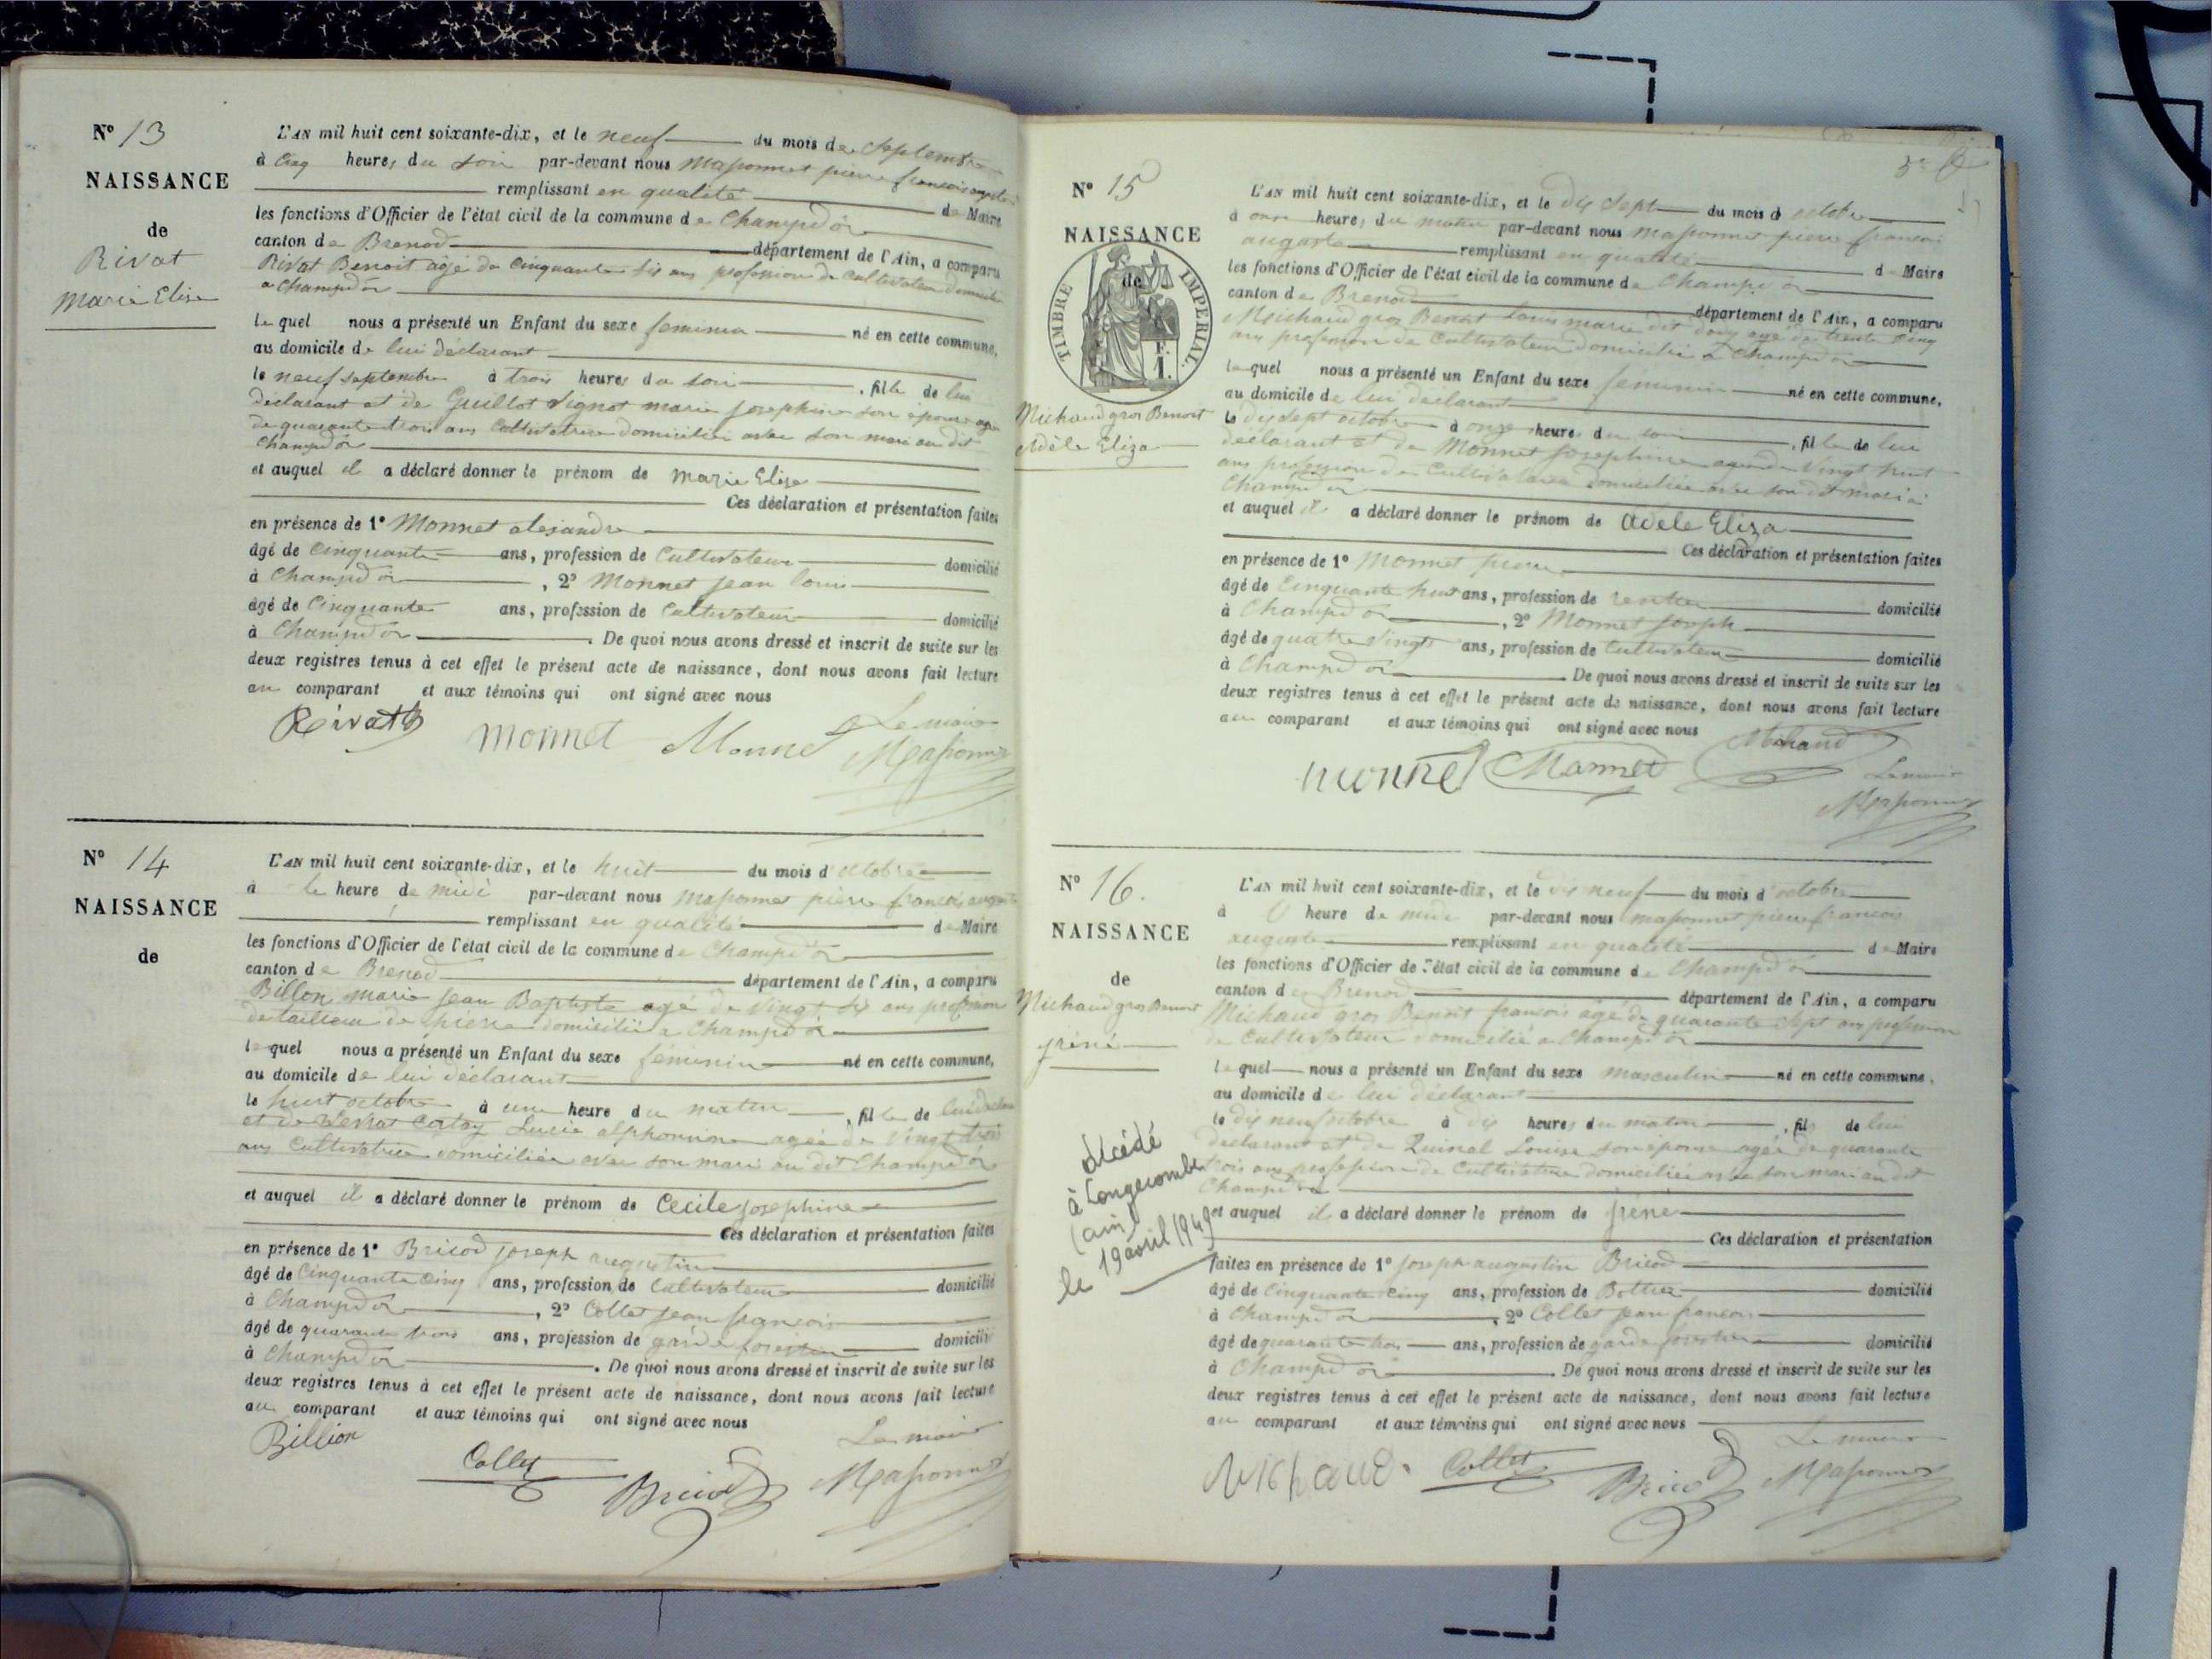 N° 13
NAISSANCE
de
Rivat
Marie Elise
L'AN mil huit cent soixante-dix, et le neuf du mois de Septembre
à Cinq heures du soir par-devant nous Maponnet pierre francois auguste
remplissant en qualité de Maire
les fonctions d'Officier de l'état civil de la commune de Champdor
canton de Brenod département de l'Ain, a comparu
Rivat Benoit âgé de Cinquante six ans profession de Cultivateur domicilié
a Champdor
lequel nous a présenté un Enfant du sexe feminin né en cette commune,
au domicile de lui déclarant
le neuf septembre à trois heures du soir, fille de lui
déclarant et de Guillot Vignot marie Josephine son épouse agée
de quarante trois ans Cultivatrice domiciliée avec son mari au dit
Champdor
et auquel il a déclaré donner le prénom de Marie Elise
Ces déclaration et présentation faites
en présence de 1° Monnet alexandre
âgé de Cinquante ans, profession de Cultivateur domicilié
à Champdor, 2° Monnet Jean louis
âgé de Cinquante ans, profession de Cultivateur domicilié
à Champdor. De quoi nous avons dressé et inscrit de suite sur les
deux registres tenus à cet effet le présent acte de naissance, dont nous avons fait lecture
au comparant et aux témoins qui ont signé avec nous
Rivat B Monnet Monnet Le maire
Maponnet
N° 14
NAISSANCE
de
L'AN mil huit cent soixante-dix, et le huit du mois d'octobre
à le heure de midi par-devant nous Maponnet pierre francois auguste
remplissant en qualité de Maire
les fonctions d'Officier de l'état civil de la commune de Champdor
canton de Brenod département de l'Ain, a comparu
Billon marie Jean Baptiste agé de Vingt six ans profession
de tailleur de pierre domicilié a Champdor
lequel nous a présenté un Enfant du sexe féminin né en cette commune,
au domicile de lui déclarant
le huit octobre à une heure du matin, fille de lui déclarant
et de Lucie alphonsine agée de Vingt trois
ans Cultivatrice domiciliée avec son mari au dit Champdor
et auquel il a déclaré donner le prénom de Cecile Josephine
Ces déclaration et présentation faites
en présence de 1° Bricod Joseph augustin
âgé de Cinquante Cinq ans, profession de Cultivateur domicilié
à Champdor, 2° Collet Jean francois
âgé de quarante trois ans, profession de garde forestier domicilié
à Champdor. De quoi nous avons dressé et inscrit de suite sur les
deux registres tenus à cet effet le présent acte de naissance, dont nous avons fait lecture
au comparant et aux témoins qui ont signé avec nous
Billion Collet Bricod Le maire
Maponnet
N° 15
NAISSANCE
de
TIMBRE IMPERIAL
Michaud gros Benoit
Adèle Eliza
L'AN mil huit cent soixante-dix, et le dix sept du mois d octobre
à onze heures du matin par-devant nous Maponnet pierre francois
auguste remplissant en qualité de Maire
les fonctions d'Officier de l'état civil de la commune de Champdor
canton de Brenod département de l'Ain, a comparu
Michaud gros Benoit Louis marie dit agé de trente Cinq
ans profession de Cultivateur domicilié a Champdor
lequel nous a présenté un Enfant du sexe féminin né en cette commune,
au domicile de lui déclarant
le dix sept octobre à onze heures du, fille de lui
déclarant et de Monnet Josephine agée de Vingt huit
ans profession de Cultivatrice domiciliée avec son dit mari a
Champdor
et auquel il a déclaré donner le prénom de Adele Eliza
Ces déclaration et présentation faites
en présence de 1° Monnet pierre
âgé de Cinquante huit ans, profession de rentier domicilié
à Champdor, 2° Monnet Joseph
âgé de quatre Vingts ans, profession de Cultivateur domicilié
à Champdor. De quoi nous avons dressé et inscrit de suite sur les
deux registres tenus à cet effet le présent acte de naissance, dont nous avons fait lecture
au comparant et aux témoins qui ont signé avec nous
Monnet Monnet Michaud
Le maire
Maponnet
N° 16.
NAISSANCE
de
Michaud gros Benoit
jréné
décédé
à Longecombe
(ain)
le 19 avril 1949
L'AN mil huit cent soixante-dix, et le dix neuf du mois d'octobre
à heure de midi par-devant nous Maponnet pierre francois
auguste remplissant en qualité de Maire
les fonctions d'Officier de l'état civil de la commune de Champdor
canton de Brenod département de l'Ain, a comparu
Michaud gros Benoit francois agé de quarante Sept ans profession
de Cultivateur domicilié a Champdor
lequel nous a présenté un Enfant du sexe masculin né en cette commune,
au domicile de lui déclarant
le dix neuf octobre à dix heures du matin, fils de lui
déclarant et de Quinel Louise son épouse agée de quarante
trois ans profession de Cultivatrice domiciliée avec son mari au dit
Champdor
et auquel il a déclaré donner le prénom de jréné
Ces déclaration et présentation
faites en présence de 1° Joseph augustin Bricod
âgé de Cinquante Cinq ans, profession de Bottier domicilié
à Champdor, 2° Collet Jean francois
âgé de quarante trois ans, profession de garde forestier domicilié
à Champdor. De quoi nous avons dressé et inscrit de suite sur les
deux registres tenus à cet effet le présent acte de naissance, dont nous avons fait lecture
au comparant et aux témoins qui ont signé avec nous
Michaud Collet Bricod Le maire
Maponnet